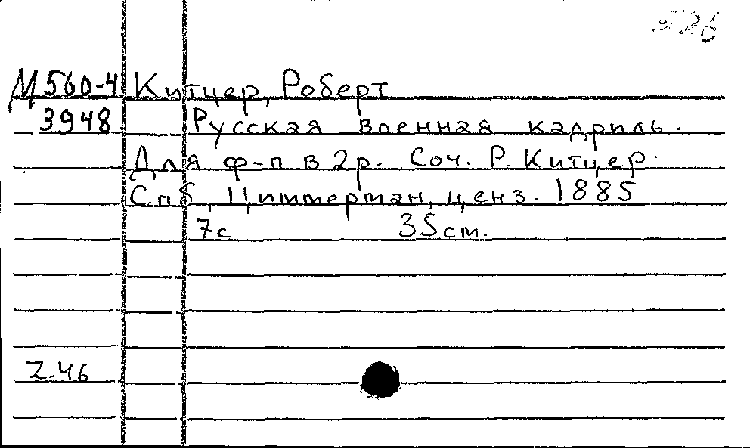 526
М560-4 Китцер, Роберт
3948 Русская военная кадриль.
Для ф-п в 2р. Соч. Р. Китцер.
Спб, Циммерман, ценз. 1885
7с 35см.
Z46